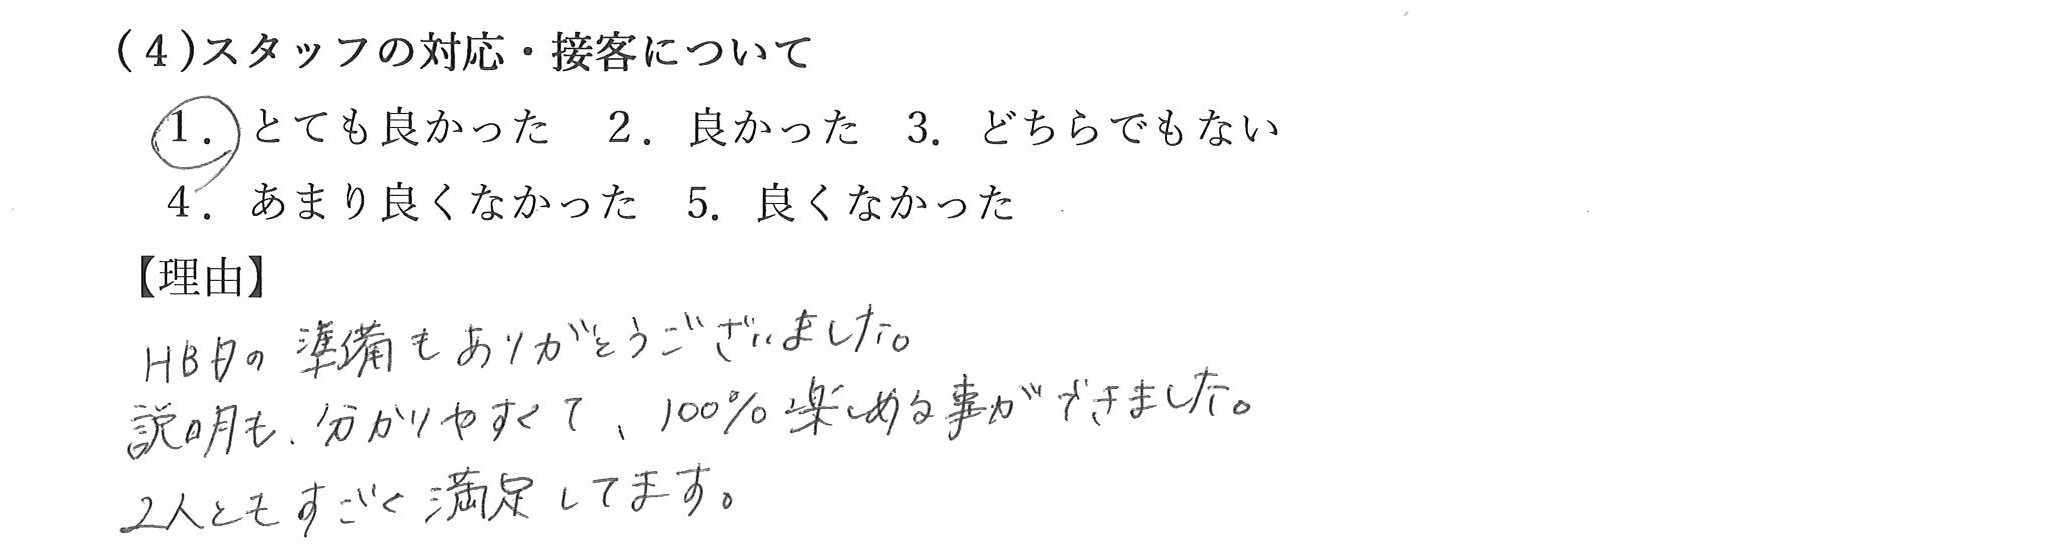 (4)スタッフの対応・接客について
1. とても良かった 2. 良かった 3. どちらでもない
4. あまり良くなかった 5. 良くなかった
【理由】
HB日の準備もありがとうございました。
説明も、分かりやすくて、100%楽しめる事ができました。
2人ともすごく満足してます。